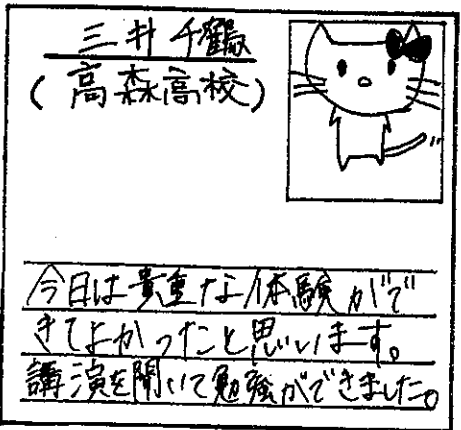 三井千鶴
(高森高校)
今日は貴重な体験がで
きてよかったと思います。
講演を聞いて勉強ができました。